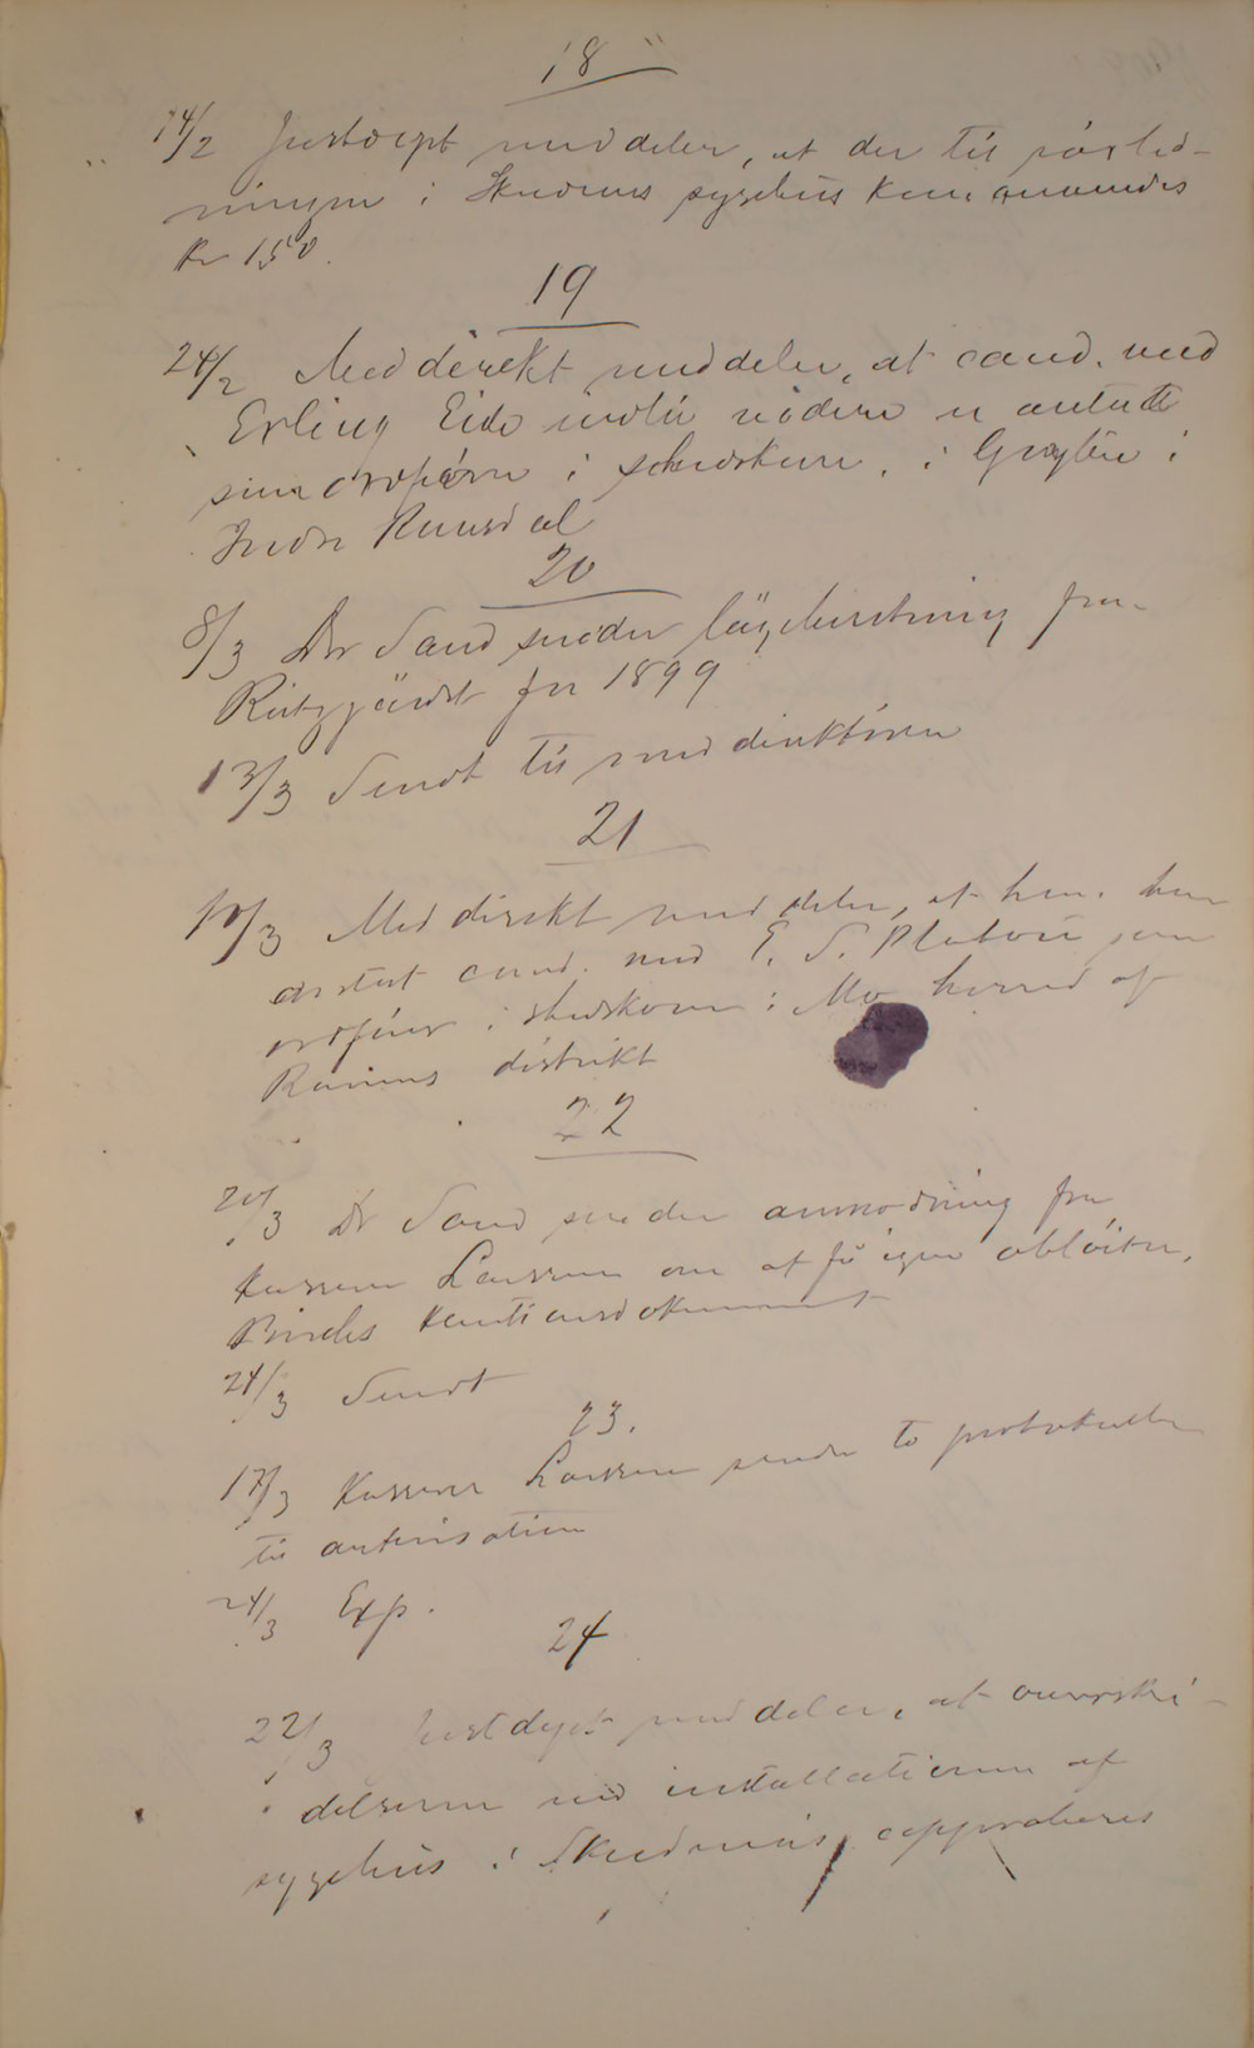 18
14/2 Justdept meddeler, at der til rørled-
ningen i Skudenes sygehus kan anvendes
Kr 150.
19
24/2 Meddirekt meddeler, at cand. med
Erling Eide indtil videre er antatt
som ordfører i sundskom. i i
Indre Ranens
20
8/3 Dr Sand sender lägeberetning fra
for 1899
13/3 Sendt til meddirektøren
21
10/3 Meddirekt meddeler, at han har
cand. med E. S. Platou som
ordfører i sundskom i Mo herred af
Ranens distrikt
22
20/3 Dr Sand sender anmodning fra
Kasserer Larssen om at få igjen afløiste
kautionsdokument
24/3 Sendt
23.
17/3 Kasserer Larssen sender to protokoller
til autorisation
24/3 Exp.
24
22/3 Justdept meddeler, at overskri-
delserne ved installationen af
sygehus i Skudenes approberes